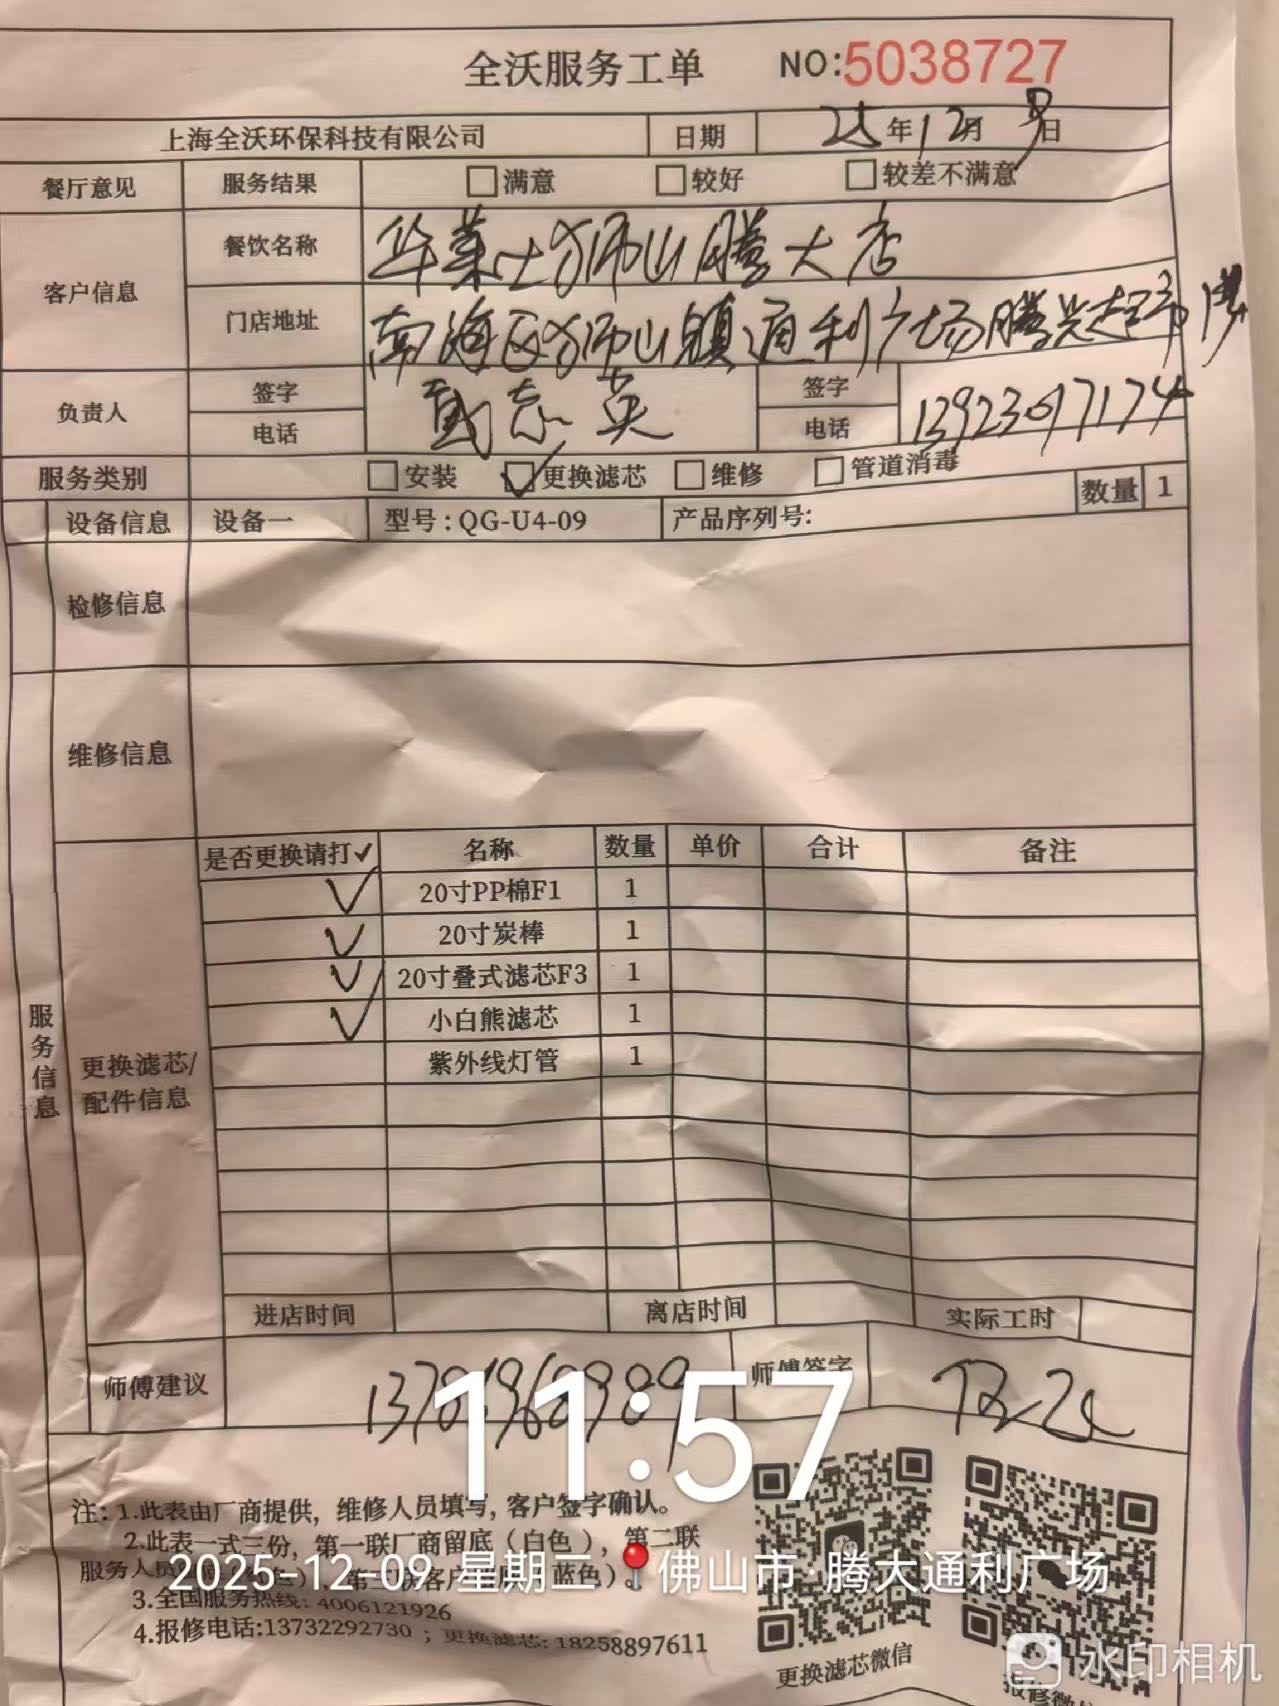 全沃服务工单 NO:5038727
上海全沃环保科技有限公司 日期 25年12月9日
餐厅意见 服务结果 满意 较好 较差不满意
客户信息 餐饮名称 华莱士狮山腾大店
门店地址 南海区狮山镇通利广场腾兴超市
负责人 签字 志英 签字
电话 电话 13923097174
服务类别 安装 ✓更换滤芯 维修 管道消毒
设备信息 设备一 型号:QG-U4-09 产品序列号: 数量 1
检修信息
维修信息
是否更换请打✓ 名称 数量 单价 合计 备注
✓ 20寸PP棉F1 1
✓ 20寸炭棒 1
✓ 20寸叠式滤芯F3 1
✓ 小白熊滤芯 1
紫外线灯管 1
服务信息
更换滤芯/
配件信息
进店时间 离店时间 实际工时
师傅建议 师傅签字
11:57
注: 1.此表由厂商提供, 维修人员填写, 客户签字确认。
2.此表一式三份, 第一联厂商留底 (白色), 第二联
服务人员 蓝色)。
2025-12-09 星期二 佛山市·腾大通利广场
3.全国服务热线: 4006121926
4.报修电话:13732292730 ; 更换滤芯: 18258897611
更换滤芯微信
报修微信
水印相机